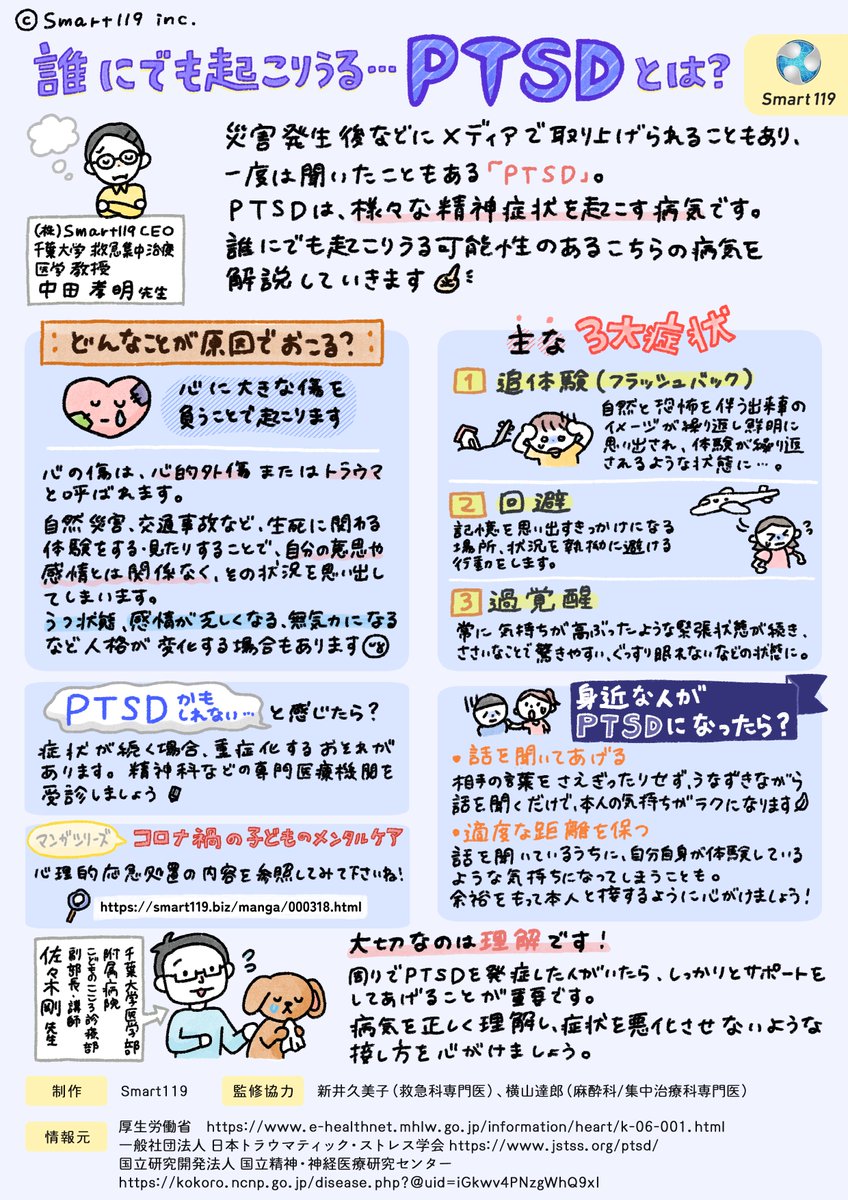 ©Smart119 inc.
誰にでも起こりうる…PTSDとは?
Smart119
災害発生後などにメディアで取り上げられることもあり、
一度は聞いたこともある「PTSD」。
PTSDは、様々な精神症状を起こす病気です。
誰にでも起こりうる可能性のあるこちらの病気を
解説していきます
(株)Smart119 CEO
千葉大学 救急集中治療
医学 教授
中田 孝明 先生
どんなことが原因でおこる?
心に大きな傷を
負うことで起こります
心の傷は、心的外傷 またはトラウマ
と呼ばれます。
自然災害、交通事故など、生死に関わる
体験をする・見たりすることで、自分の意思や
感情とは関係なく、その状況を思い出し
てしまいます。
うつ状態、感情が乏しくなる、無気力になる
など人格が変化する場合もあります
主な 3大症状
1 追体験(フラッシュバック)
自然と恐怖を伴う出来事の
イメージが繰り返し鮮明に
思い出され、体験が繰り返
されるような状態に…。
2 回避
記憶を思い出すきっかけになる
場所、状況を執拗に避ける
行動をします。
3 過覚醒
常に気持ちが高ぶったような緊張状態が続き、
ささいなことで驚きやすい、ぐっすり眠れないなどの状態に。
PTSDかもしれない…と感じたら?
症状が続く場合、重症化するおそれが
あります。精神科などの専門医療機関を
受診しましょう
身近な人が
PTSDになったら?
・話を聞いてあげる
相手の言葉をさえぎったりせず、うなずきながら
話を聞くだけで、本人の気持ちがラクになります
・適度な距離を保つ
話を聞いているうちに、自分自身が体験している
ような気持ちになってしまうことも。
余裕をもって本人と接するように心がけましょう!
マンガシリーズ コロナ禍の子どものメンタルケア
心理的応急処置の内容を参照してみて下さいね!
https://smart119.biz/manga/000318.html
千葉大学医学部
附属病院
こどものこころ診療部
副部長・講師
佐々木剛 先生
大切なのは理解です!
周りでPTSDを発症した人がいたら、しっかりとサポートを
してあげることが重要です。
病気を正しく理解し、症状を悪化させないような
接し方を心がけましょう。
制作 Smart119 監修協力 新井久美子(救急科専門医)、横山達郎(麻酔科/集中治療科専門医)
情報元 厚生労働省 https://www.e-healthnet.mhlw.go.jp/information/heart/k-06-001.html
一般社団法人 日本トラウマティック・ストレス学会 https://www.jstss.org/ptsd/
国立研究開発法人 国立精神・神経医療研究センター
https://kokoro.ncnp.go.jp/disease.php?@uid=iGkwv4PNzgWhQ9xI